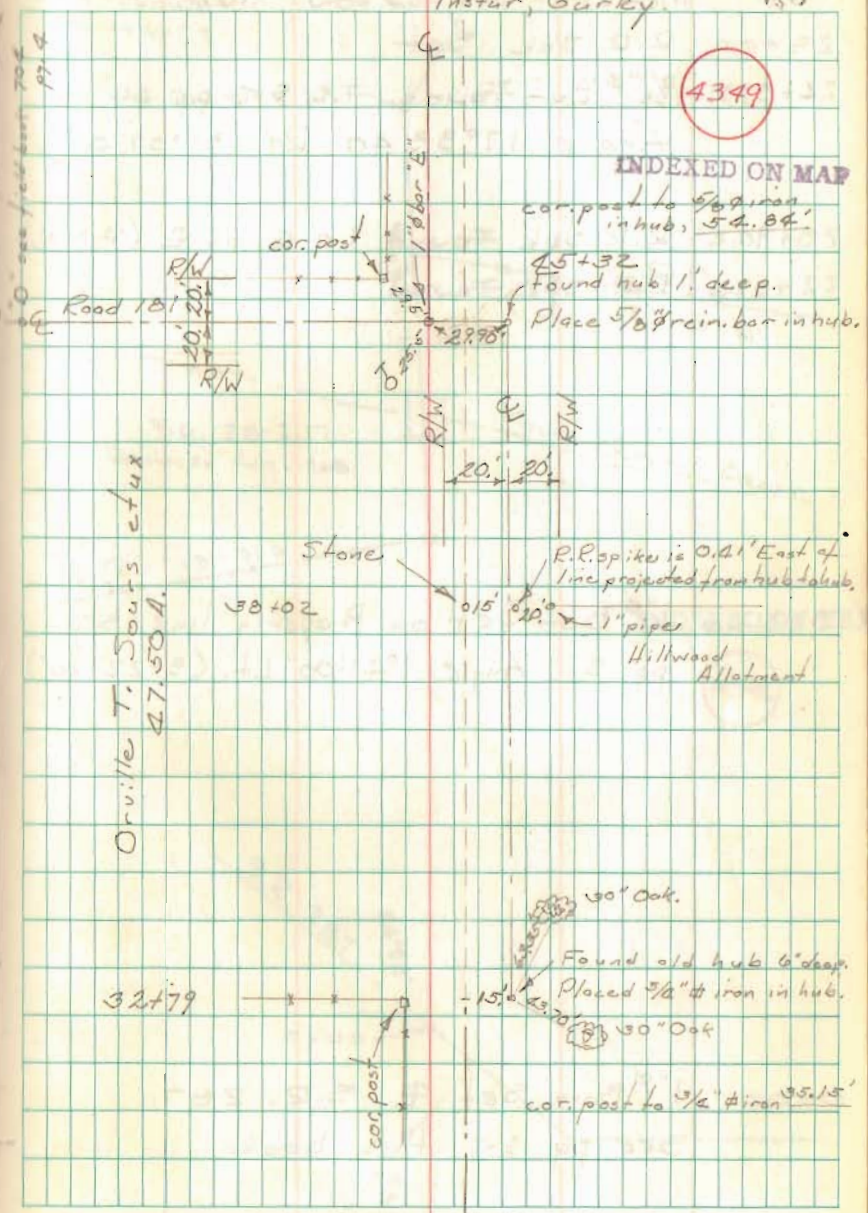 Instur, Gurley.
℄
4349
INDEXED ON MAP
"D" see field book 704
pg. 4
1"ø bar "E"
cor. post to 5/8 ø iron
in hub, 54.84'
cor. post
R/W
45+32
Found hub 1.' deep.
Place 5/8"ø rein. bar in hub.
℄ Road 181
20.'
20.'
R/W
29.5'
29.98'
25.6'
R/W
℄
R/W
20.' 20.'
Orville T. Sours etux
47.50 A.
Stone
R.R. spike is 0.41' East of
line projected from hub to hub.
38+02
15'
20.'
1" pipe
Hillwood
Allotment
30" Oak.
Found old hub 6" deep.
Placed 3/4" ø iron in hub.
32+79
15.'
43.70'
30" Oak
cor. post
cor. post to 3/4" ø iron 35.15'